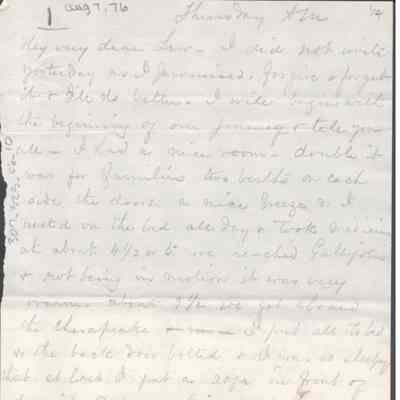 1
Aug 7. 76
Thursday A M
My very dear Lew - I did not write
yesterday as I promised. forgive & forget
it & I'll do better. I will begin with
the beginning of our journey & tell you
all - I had a nice room - double it
was for families two berths on each
side the doors a nice breeze so I
rested on the bed all day & took medicine
at about 4 1/2 or 5 we reached Gallipolis
& not being in motion it was very
warm about 9 1/2 we got aboard
the Chesapeake I put all to bed
so the back door bolted & I was so sleepy
that at last I put a sofa in front of